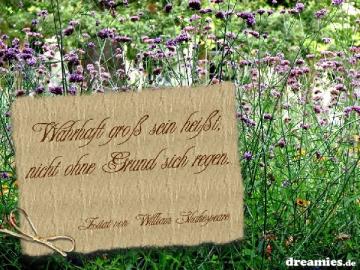 Wahrhaft groß sein heißt,
nicht ohne Grund sich regen.
Zitat von William Shakespeare
dreamies.de